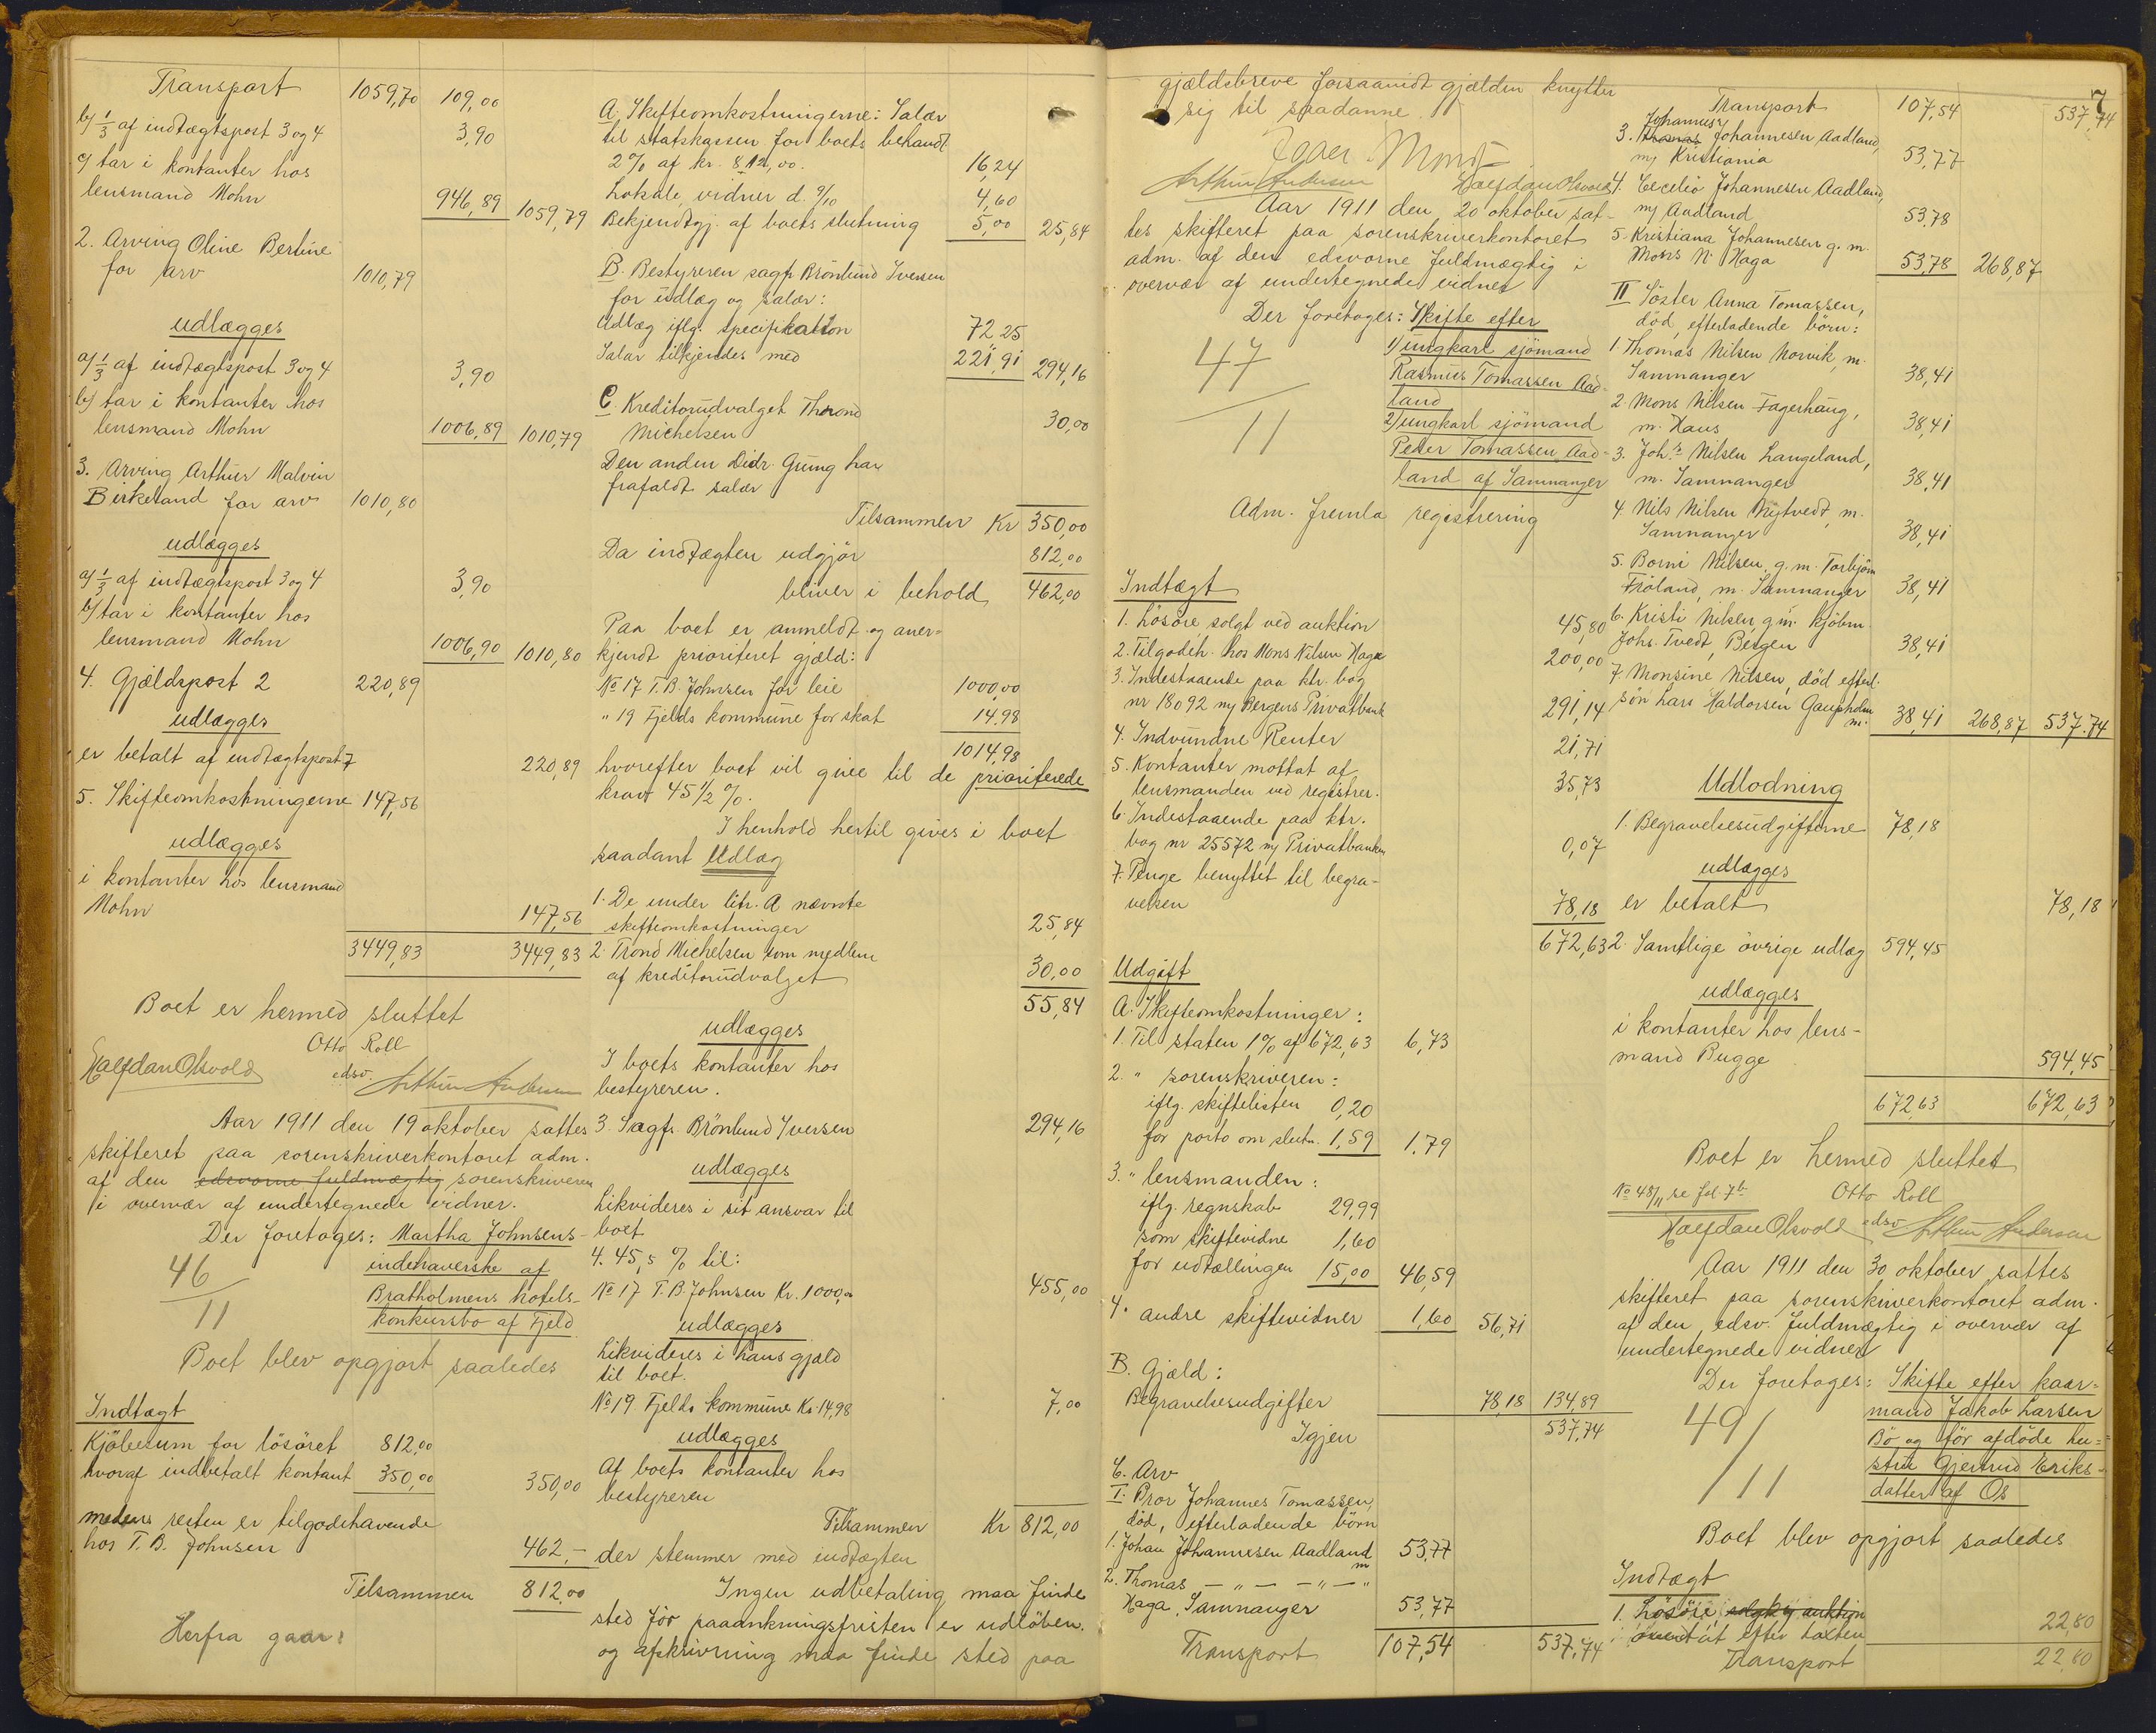 Transport 1059,70 109,00
b/ 1/3 af indtægtspost 3 og 4 3,90
c/ tar i kontanter hos
lensmand Mohn 946,89 1059,79
2. Arving Oline Bertine
for arv 1010,79
udlægges
a/ 1/3 af indtægtspost 3 og 4 3,90
b/ tar i kontanter hos
lensmand Mohn 1006,89 1010,79
3. Arving Arthur Malvin
Birkeland for arv 1010,80
udlægges
a/ 1/3 af indtægtspost 3 og 4 3,90
b/ tar i kontanter hos
lensmand Mohn 1006,90 1010,80
4. Gjældspost 2 220,89
udlægges
er betalt af indtægtspost 7 220,89
5. Skifteomkostningerne 147,56
udlægges
i kontanter hos lensmand
Mohn 147,56
3449,83 3449,83
Boet er hermed sluttet
Otto Roll
edsv.
Halfdan Olsvold Arthur Andersen
Aar 1911 den 19 oktober sattes
skifteret paa sorenskriverkontoret adm.
af den edsvorne fuldmægtig sorenskriveren
i overvær af undertegnede vidner.
Der foretages: Martha Johnsens
46/11 indehaverske af
Bratholmens hotels
konkursbo af Fjeld
Boet blev opgjort saaledes
Indtægt
Kjöbesum for lösöret 812,00
hvoraf indbetalt kontant 350,00 350,00
medens resten er tilgodehavende
hos T. B. Johnsen 462,-
Tilsammen 812,00
Herfra gaar:
A. Skifteomkostningerne: Salær
til statskassen for boets behandl.
2% af kr. 812,00. 16,24
Lokale, vidner d. 9/10 4,60
Bekjendtgj. af boets slutning 5,00 25,84
B. Bestyreren sagf. Brönlund Iversen
for udlæg og salær:
Udlæg iflg. specifikation 72,25
Salær tilkjendes med 221,91 294,16
C. Kreditorudvalget Thrond
Michelsen 30,00
Den anden Didr. Gung har
frafaldt salær
Tilsammen Kr 350,00
Da indtægten udgjör 812,00
bliver i behold 462,00
Paa boet er anmeldt og aner-
kjendt prioriteret gjæld:
No 17 T. B. Johnsen for leie 1000,00
" 19 Fjelds kommune for skat 14,98
1014,98
hvorefter boet vil give til de prioriterede
krav 45 1/2 %.
I henhold hertil gives i boet
saadant Udlæg
1. De under litr. A nævnte
skifteomkostninger 25,84
2. Trond Michelsen som medlem
af kreditorudvalget 30,00
55,84
udlægges
I boets kontanter hos
bestyreren.
3. Sagf. Brönlund Iversen 294,16
udlægges
Likvideres i sit ansvar til
boet
4. 45,5 % til:
No 17 T. B. Johnsen Kr. 1000,00 455,00
udlægges
Likvideres i hans gjæld
til boet.
No 19. Fjelds kommune Kr. 14,98 7,00
udlægges
Af boets kontanter hos
bestyreren
Tilsammen Kr 812,00
der stemmer med indtægten
Ingen udbetaling maa finde
sted för paaankningsfristen er udlöben.
og afskrivning maa finde sted paa
gjældsbreve forsaavidt gjælden knytter
sig til saadanne.
Arthur Andersen Halfdan Olsvold
Aar 1911 den 20 oktober sat-
tes skifteret paa sorenskriverkontoret
adm. af den edsvorne fuldmægtig i
overvær af undertegnede vidner
Der foretages: Skifte efter
47/11 1) ungkarl sjömand
Rasmus Tomassen Aad-
land
2) ungkarl sjömand
Peder Tomassen Aad-
land af Samnanger
Adm. fremla registrering
Indtægt
1. Lösöre solgt ved auktion 45,80
2. Tilgodeh. hos Mons Nilsen Haga 200,00
3. Indestaaende paa ktr. bog
nr 18092 m/ Bergens Privatbank 291,14
4. Indvundne Renter 21,71
5. Kontanter mottat af
lensmanden ved registrer. 35,73
6. Indestaaende paa ktr.
bog nr 25572 m/ Privatbanken 0,07
7. Penge benyttet til begra-
velsen 78,18
672,63
Udgift
A. Skifteomkostninger:
1. Til staten 1% af 672,63 6,73
2. " sorenskriveren:
iflg. skiftelisten 0,20
for porto om slutn. 1,59 1,79
3. " lensmanden:
iflg. regnskab 29,99
som skiftevidne 1,60
for udtællingen 15,00 46,59
4. andre skiftevidner 1,60 56,71
B. Gjæld:
Begravelsesudgifter 78,18 134,89
Igjen 537,74
C. Arv
I. Bror Johannes Tomassen,
död, efterladende börn
1. Johan Johannesen Aadland 53,77
m
2. Thomas — " — — " — "
Haga, Samnanger 53,77
Transport 107,54 537,74
7
Transport 107,54 537,74
Johannes
3. Thomas Johannesen Aadland,
m/ Kristiania 53,77
4. Cecelia Johannesen Aadland,
m/ Aadland 53,78
5. Kristiana Johannesen g. m.
Mons N. Haga 53,78 268,87
II Söster Anna Tomassen,
död, efterladende börn:
1. Thomas Nilsen Norvik, m.
Samnanger 38,41
2. Mons Nilsen Fagerhaug,
m. Haus 38,41
3. Johs Nilsen Langeland,
m. Samnanger 38,41
4. Nils Nilsen Nytvedt, m.
Samnanger 38,41
5. Borni Nilsen, g. m. Torbjörn
Fröland, m. Samnanger 38,41
6. Kristi Nilsen g. m. kjöbm.
Johs. Tvedt, Bergen 38,41
7. Monsine Nilsen, död efterl.
sön Lars Haldorsen Gaupholm
m. 38,41 268,87 537,74
Udlodning
1. Begravelsesudgifterne 78,18
udlægges
er betalt 78,18
2. Samtlige övrige udlæg 594,45
udlægges
i kontanter hos lens-
mand Bugge 594,45
672,63 672,63
Boet er hermed sluttet
No 48/11 se fol. 7b
Otto Roll
edsv
Halfdan Olsvold Arthur Andersen
Aar 1911 den 30 oktober sattes
skifteret paa sorenskriverkontoret adm.
af den edsv. fuldmægtig i overvær af
undertegnede vidner
Der foretages: Skifte efter kaar-
49/11 mand Jakob Larsen
Bö og för afdöde hu-
stru Gjertrud Eriks-
datter af Os
Boet blev opgjort saaledes
Indtægt
1. Lösöre solgt v/ auktion
efter taxten 22,80
Transport 22,80